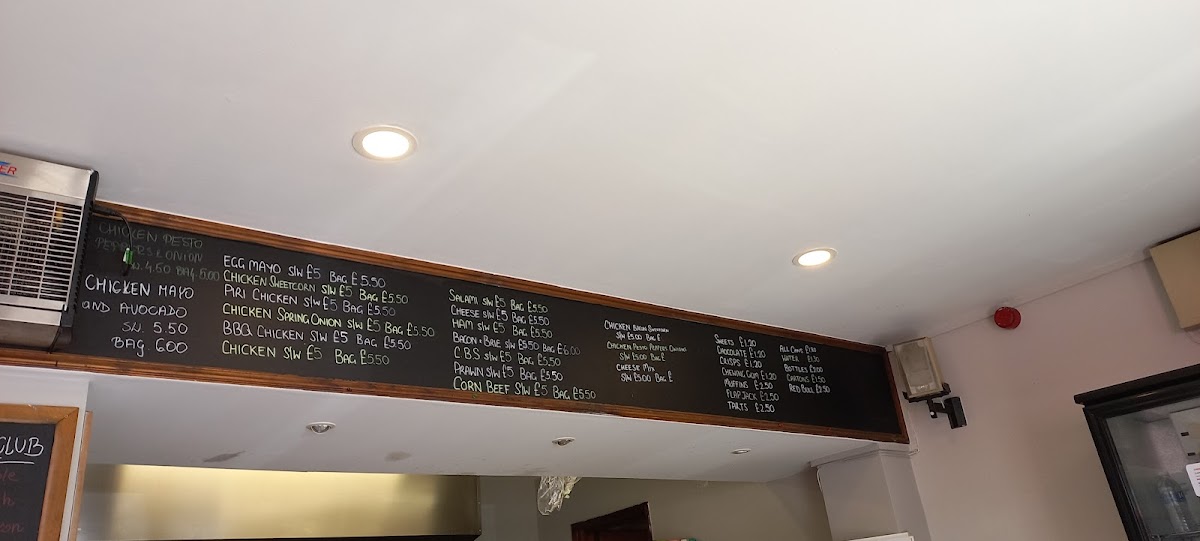 ER
CHICKEN PESTO
PEPPERS & ONION
SW. 4.50 BAG 5.00
CHICKEN MAYO
AND AVOCADO
SW. 5.50
BAG 6.00
EGG MAYO S/W £5 BAG £5.50
CHICKEN SWEETCORN S/W £5 BAG £5.50
PIRI CHICKEN S/W £5 BAG £5.50
CHICKEN SPRING ONION S/W £5 BAG £5.50
BBQ CHICKEN S/W £5 BAG £5.50
CHICKEN S/W £5 BAG £5.50
SALAMI S/W £5 BAG £5.50
CHEESE S/W £5 BAG £5.50
HAM S/W £5 BAG £5.50
BACON + BRIE S/W £5.50 BAG £6.00
CBS S/W £5 BAG £5.50
PRAWN S/W £5 BAG £5.50
CORN BEEF S/W £5 BAG £5.50
CHICKEN BACON SWEETCORN
S/W £5.00 BAG £
CHICKEN PESTO PEPPERS ONIONS
S/W £5.00 BAG £
CHEESE MIX
S/W £5.00 BAG £
SWEETS £1.20
CHOCOLATE £1.20
CRISPS £1.20
CHEWING GUM £1.20
MUFFINS £2.50
FLAPJACK £2.50
TARTS £2.50
ALL CANS
WATER
BOTTLES
CARTONS £1.50
RED BULL £2.50
CLUB